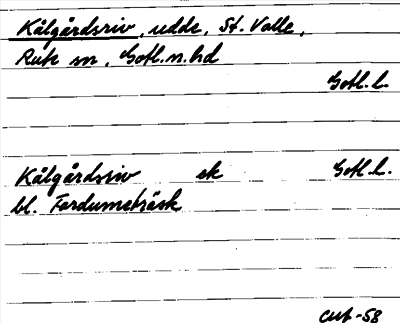 Kålgårdsriv, udde, St. Valle,
Rute sn, Gotl.n.hd
Gotl.l.
Kålgårdsriv ek Gotl.l.
bl. Fardumeträsk
CWt-58